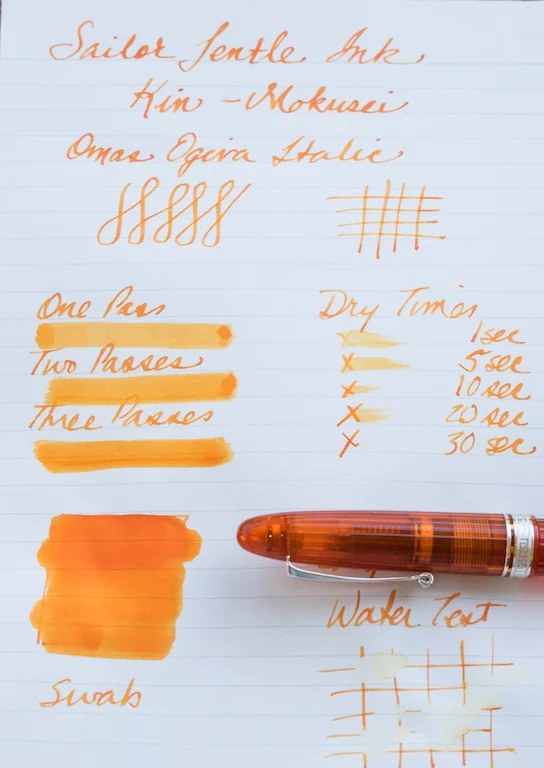 Sailor Jentle Ink
Kin-Mokusei
Omas Ogiva Italic
One Pass
Two Passes
Three Passes
Dry Times
X 1 sec
X 5 sec
X 10 sec
X 20 sec
X 30 sec
Swab
Water Test